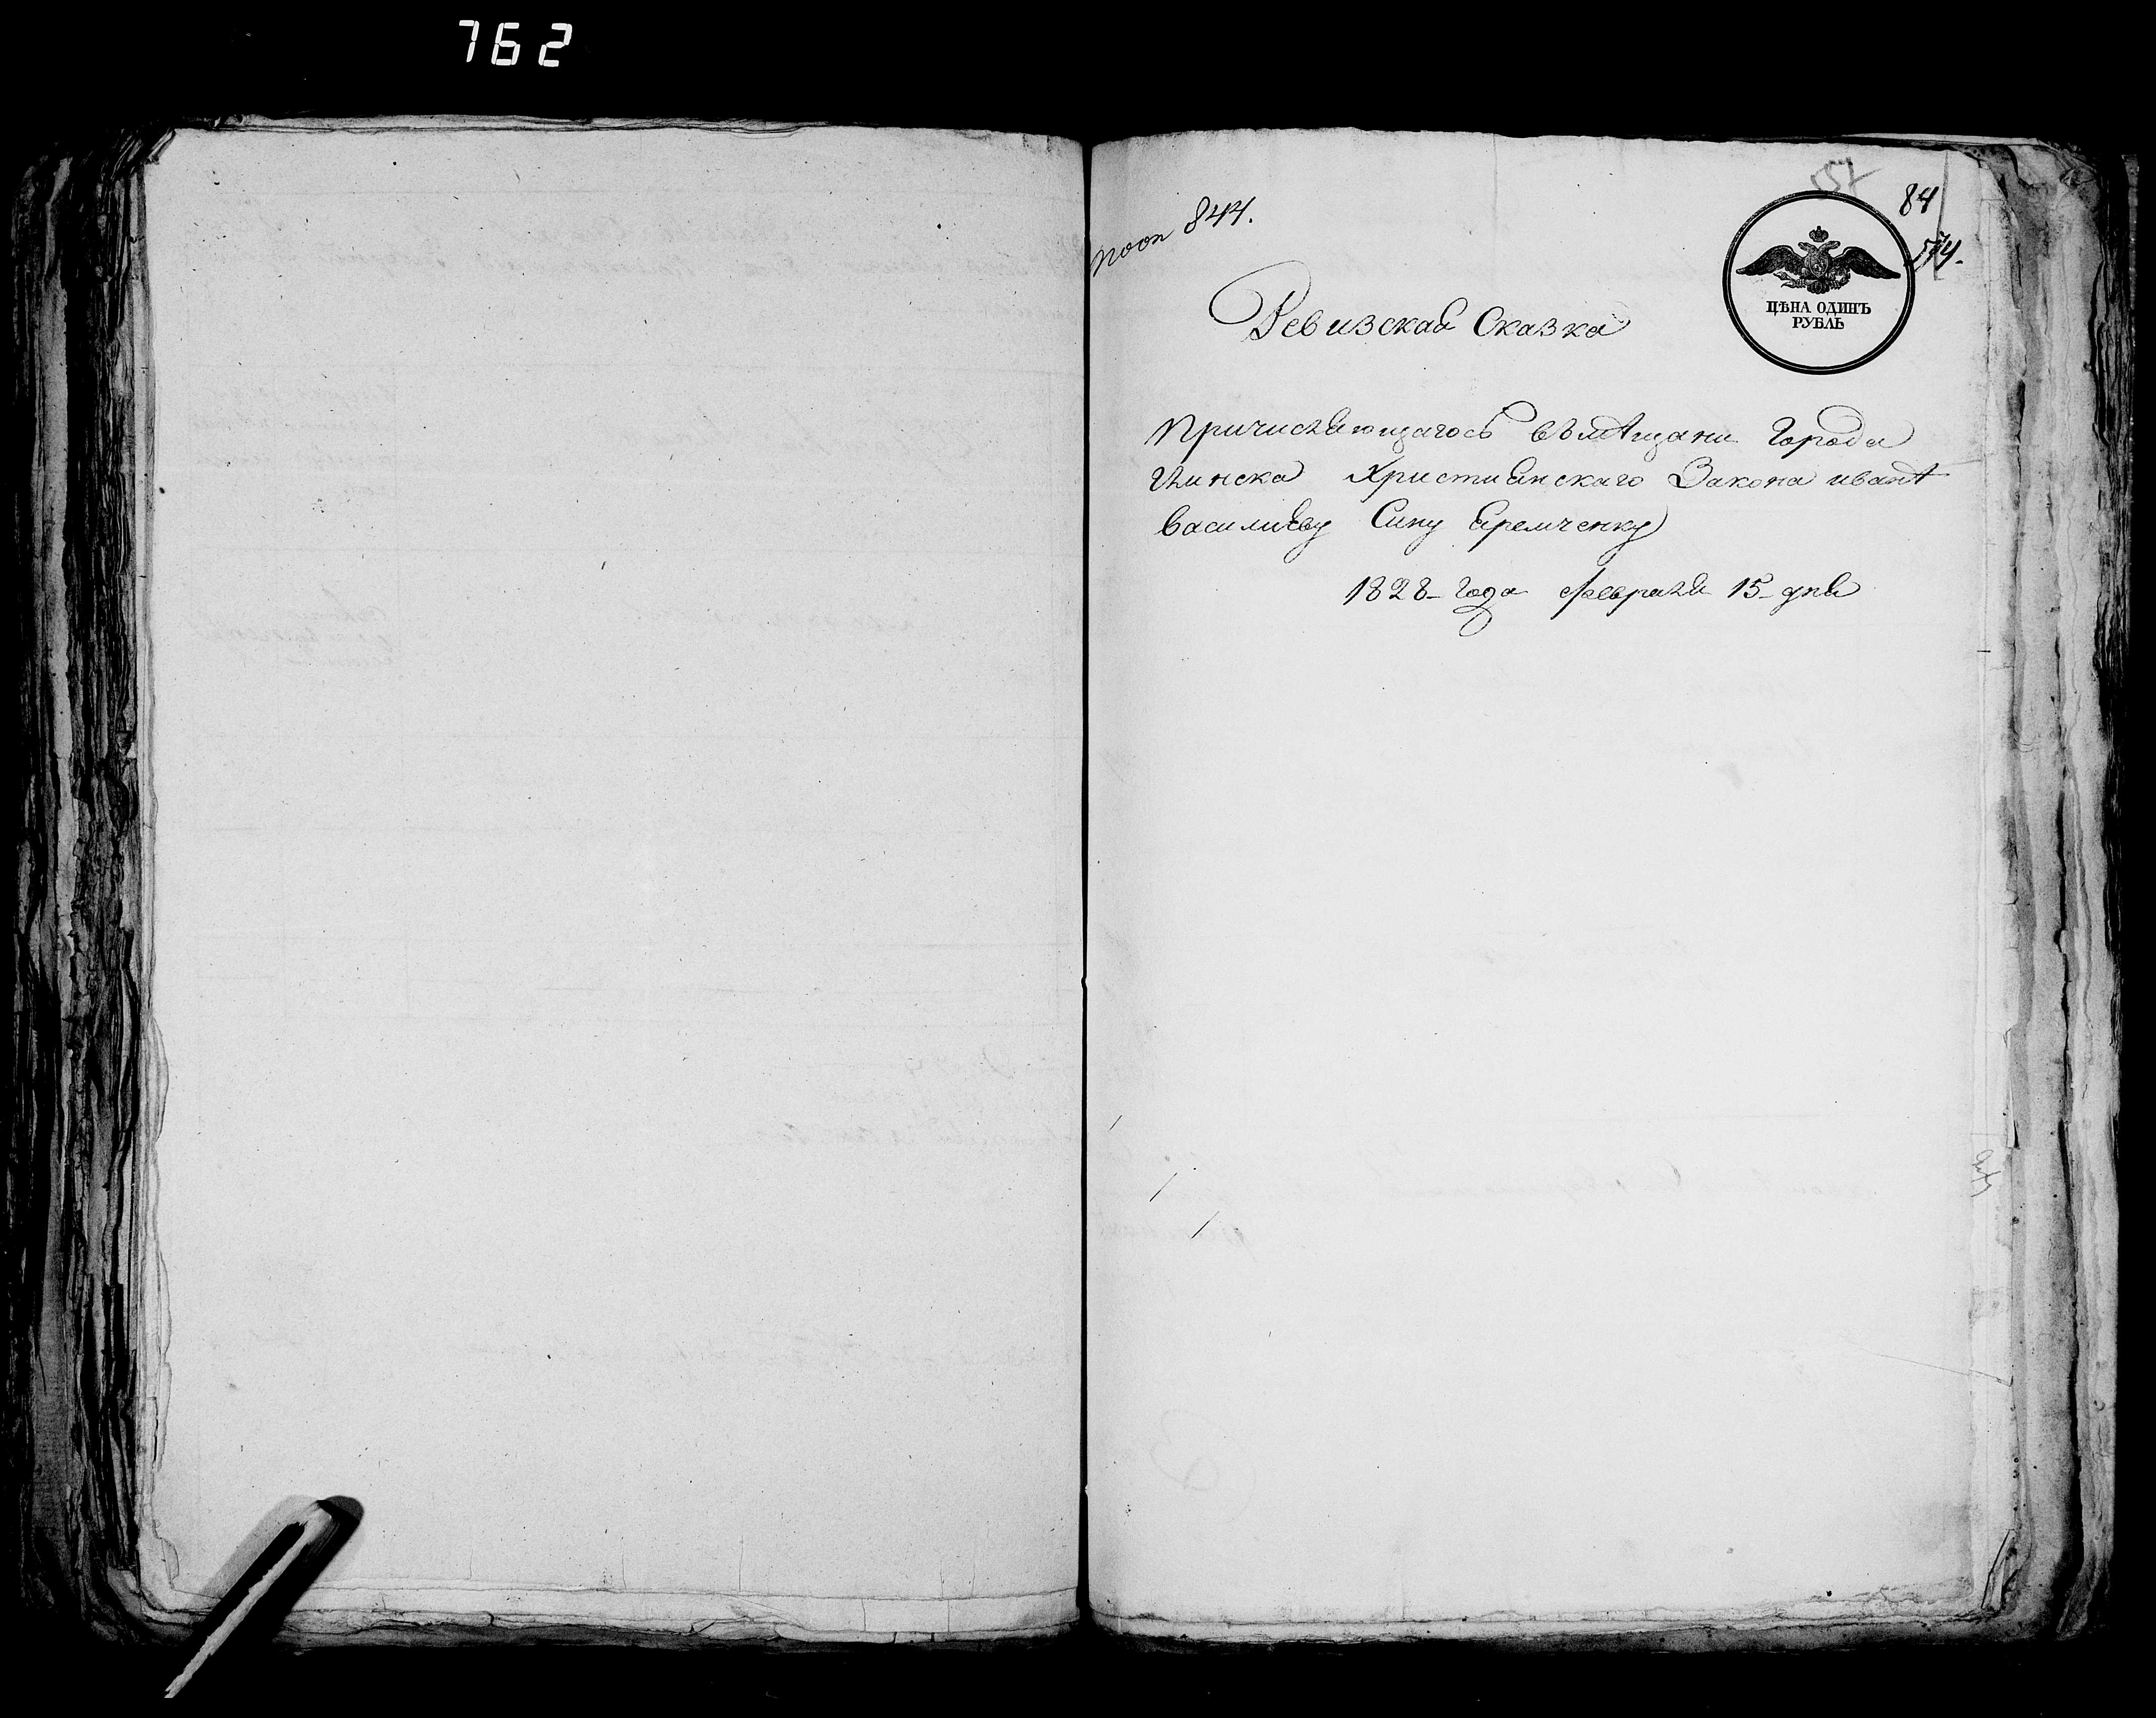 762
844.
84
574.
ЦѢНА ОДИНЪ
РУБЛЬ
Ревизская Сказка
Причисляющагось въ мѣщани Города
Глинска Христианского Закона иванѣ
василиеву Сину яремченку
1828 года февраля 15 дня